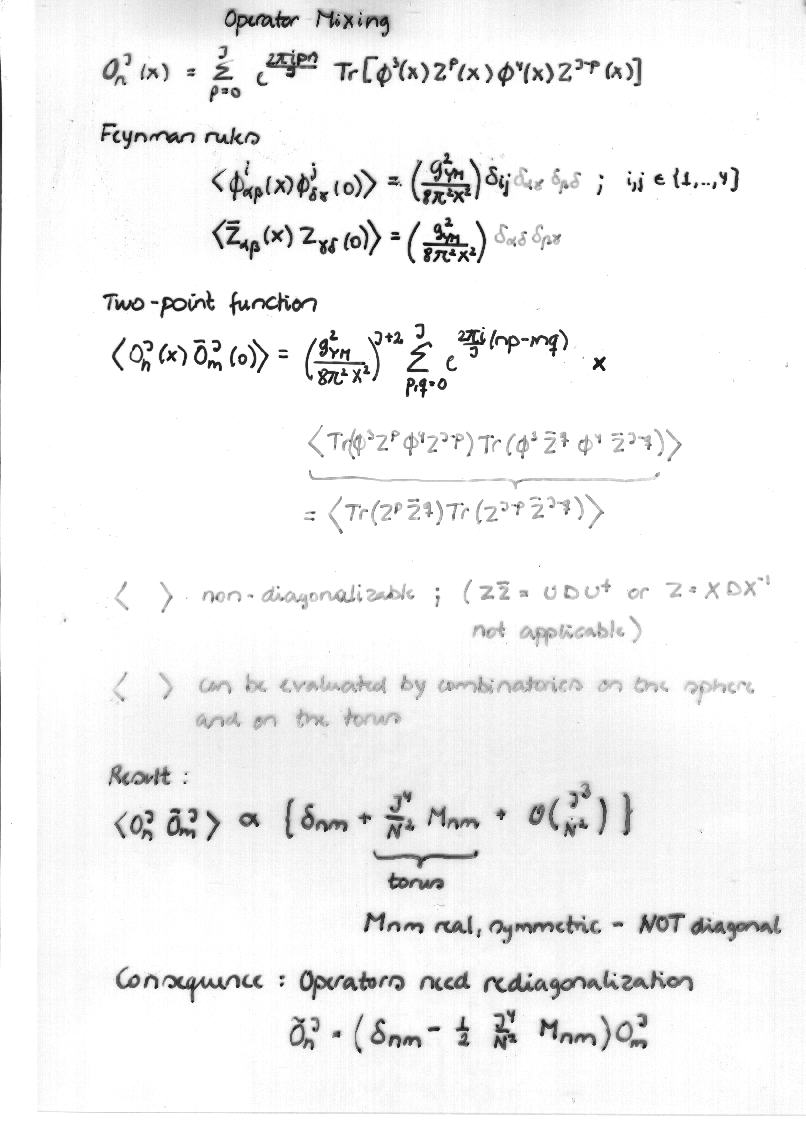 Operator Mixing
O_n^J (x) = Σ_{p=0}^{J} e^{2πipn/J} Tr[φ³(x) Z^p(x) φ⁴(x) Z^{J-p}(x)]
Feynman rules
⟨φ^i_{αβ}(x) φ^j_{δγ}(0)⟩ = (g²_YM / 8π²x²) δ_ij δ_{αγ} δ_{βδ} ; i,j ∈ {1,..,4}
⟨Z̄_{αβ}(x) Z_{γδ}(0)⟩ = (g²_YM / 8π²x²) δ_{αδ} δ_{βγ}
Two-point function
⟨O_n^J(x) Ō_m^J(0)⟩ = (g²_YM / 8π²x²)^{J+2} Σ_{p,q=0}^{J} e^{2πi/J (np-mq)} ×
⟨Tr(φ³Z^p φ⁴Z^{J-p}) Tr(φ³ Z̄^q φ⁴ Z̄^{J-q})⟩
= ⟨Tr(Z^p Z̄^q) Tr(Z^{J-p} Z̄^{J-q})⟩
⟨ ⟩ non-diagonalizable ; (ZZ̄ = UDU† or Z = XDX⁻¹
not applicable)
⟨ ⟩ can be evaluated by combinatorics on the sphere
and on the torus
Result :
⟨O_n^J Ō_m^J⟩ ∝ {δ_nm + J⁴/N² M_nm + O(J³/N²)}
torus
M_nm real, symmetric - NOT diagonal
Consequence : Operators need rediagonalization
Õ_n^J = (δ_nm - 1/2 J⁴/N² M_nm) O_m^J